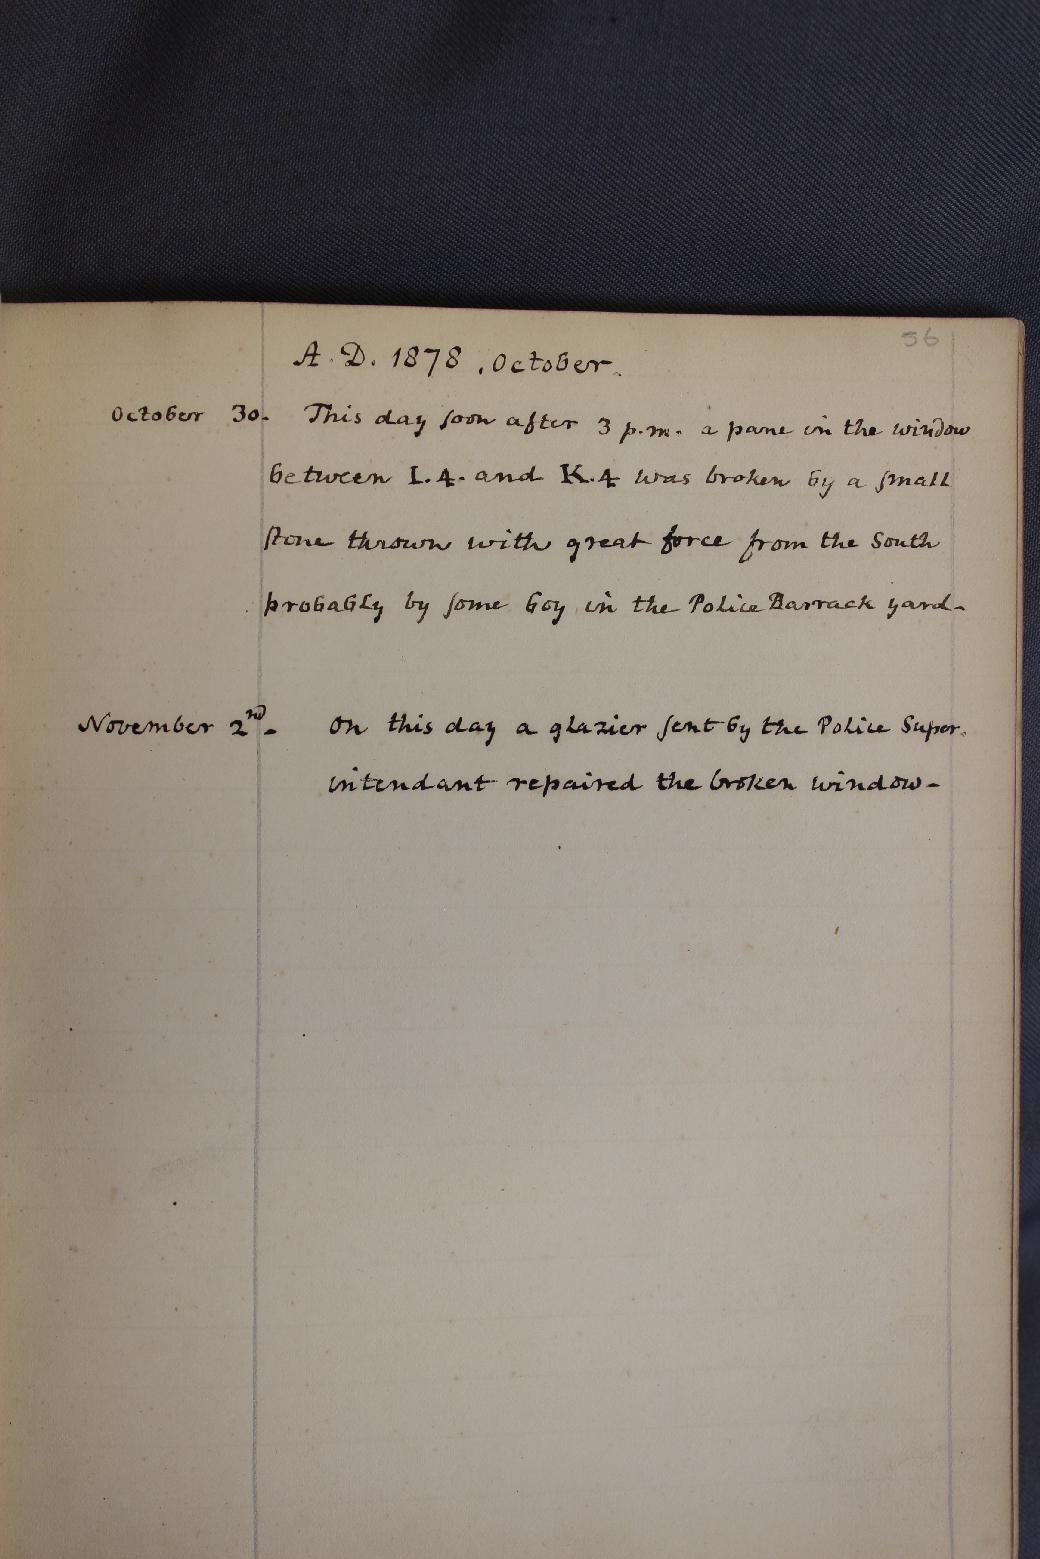 56
A.D. 1878, October.
October 30. This day soon after 3 p.m. a pane in the window
between I.4. and K.4 was broken by a small
stone thrown with great force from the South
probably by some boy in the Police Barrack yard.
November 2nd. On this day a glazier sent by the Police Super.
intendant repaired the broken window.